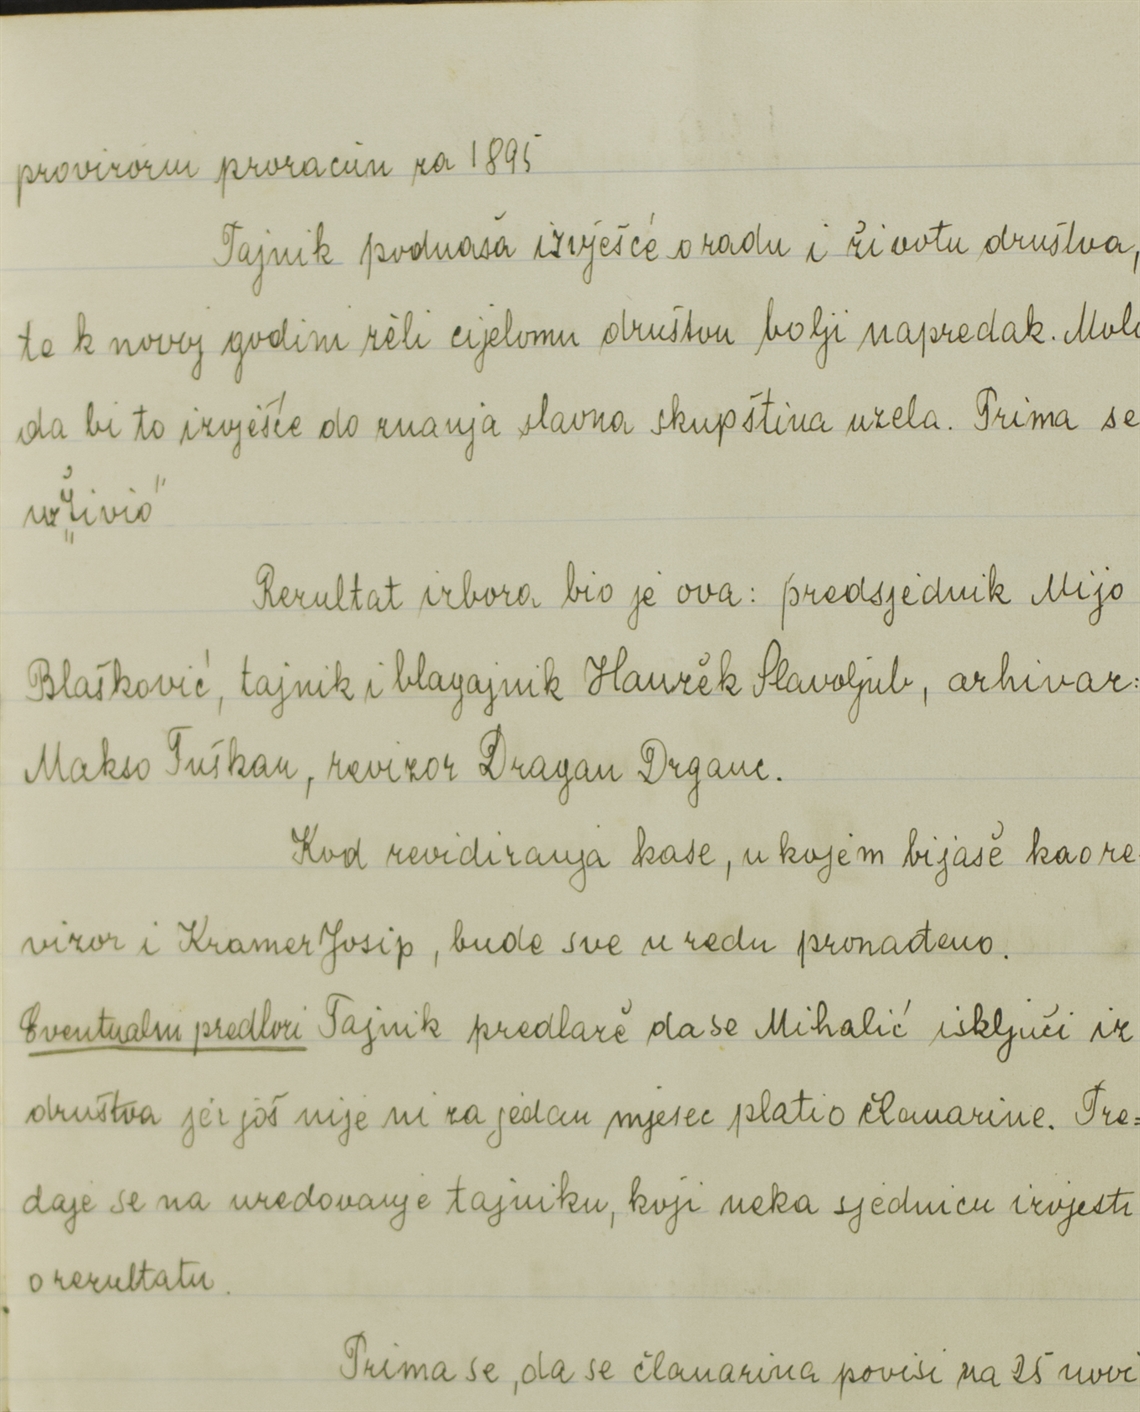 provizorni proračun za 1895
Tajnik podnaša izvješće o radu i životu društva,
te k novoj godini želi cijelomu društvu bolji napredak. Moli
da bi to izvješće do znanja slavna skupština uzela. Prima se
uz „Živio"
Rezultat izbora bio je ova: predsjednik Mijo
Blašković, tajnik i blagajnik Hanžek Slavoljub, arhivar:
Makso Tuškan, revizor Dragan Drganc.
Kod revidiranja kase, u kojem bijaše kao re-
vizor i Kramer Josip, bude sve u redu pronađeno.
Eventualni predlozi Tajnik predlaže da se Mihalić isključi iz
društva jer još nije ni za jedan mjesec platio članarine. Pre=
daje se na uredovanje tajniku, koji neka sjednicu izvjesti
o rezultatu.
Prima se, da se članarina povisi na 25 novč